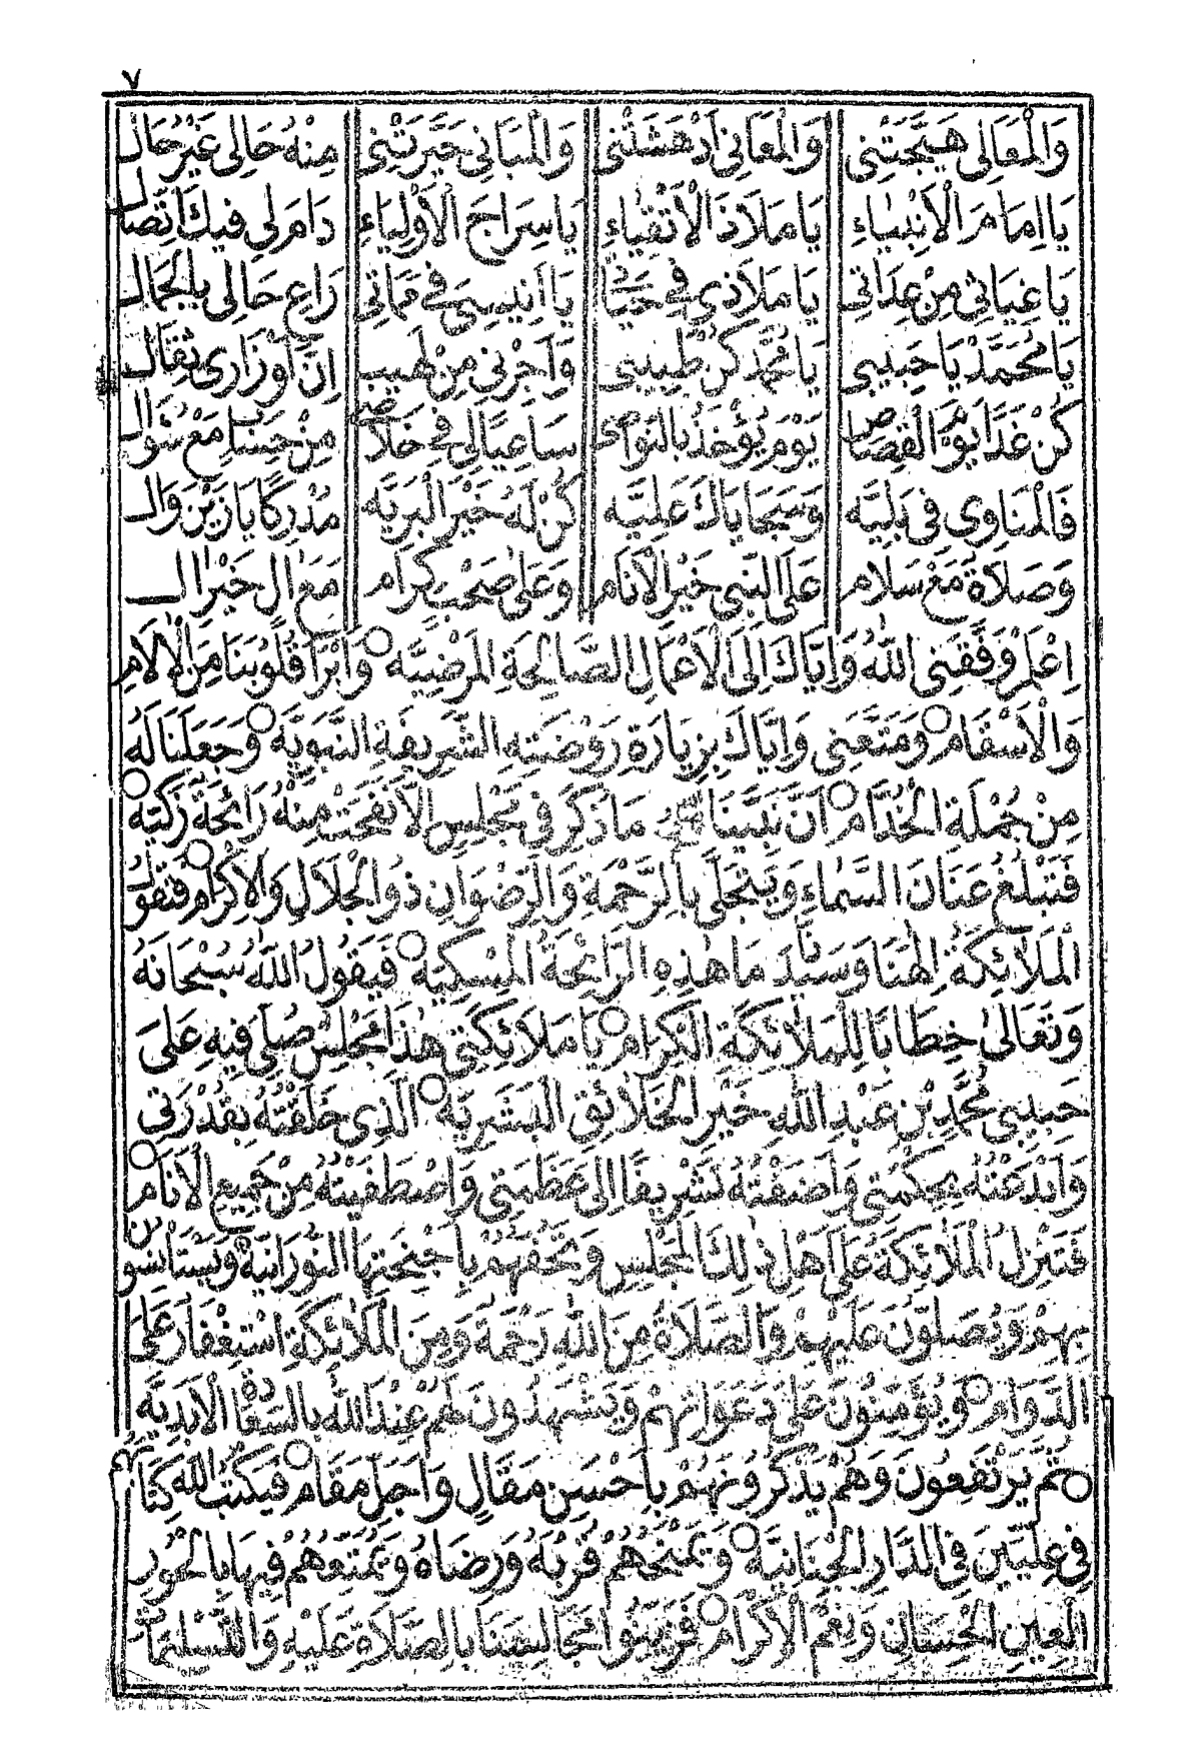 ٧
وَالْمَعَالِى هَيَّجَتْنِى وَالْمَعَانِى اَدْهَشَتْنِى وَالْمَبَانِى حَيَّرَتْنِى مِنْهُ حَالِى غَيْرُ حَالْ
يَا اِمَامَ الْاَنْبِيَاءِ يَا مَلَاذَ الْاَتْقِيَاءِ يَا سِرَاجَ الْاَوْلِيَاءِ دَامَ لِى فِيكَ اتِّصَالْ
يَا غِيَاثِى مِنْ عِدَاتِى يَا مَلَاذِى فِى حَيَاتِى يَا اَنِيسِى فِى مَمَاتِى رَاعِ حَالِى يَا لْجَمَالْ
يَا مُحَمَّدْ يَا حَبِيبِى يَا مُحَمَّدْ كُنْ طَبِيبِى وَاَجِرْنِى مِنْ لَهِيبِ اِنَّ اَوْزَارِى ثِقَالْ
كُنْ غَدًا يَوْمَ الْقِصَاصِ يَوْمَ يُؤْخَذُ بِالنَّوَاصِى سَاعِيًا لِى فِى خَلَاصِى مِنْ حِسَابٍ مَعْ سُؤَالْ
فَالْمَنَاوِى فِى بَلِيَّه وَسَجَايَاكَ عَلِيَّه كُنْ لَهُ خَيْرَ الْبَرِيَّه مُدْرِكًا يَا زَيْنَ وَالْ
وَصَلَاةٌ مَعْ سَلَامِ عَلَى النَّبِى خَيْرِ الْاَنَامِ وَعَلَى صَحْبٍ كِرَامِ مَعَ اٰلٍ خَيْرِ اٰلْ
اِعْلَمْ وَفَّقَنِى اللهُ وَاِيَّاكَ اِلَى الْاَعْمَالِ الصَّالِحَةِ الْمَرْضِيَّه وَاَبْرَأَ قُلُوبَنَا مِنَ الْاٰلَامِ
وَالْاَسْقَامِ وَمَتَّعَنِى وَاِيَّاكَ بِزِيَارَةِ رَوْضَتِهِ الشَّرِيفَةِ النَّبَوِيَّه وَجَعَلَنَا لَهُ
مِنْ جُمْلَةِ الْخُدَّامِ اَنَّ نَبِيَّنَا مَا ذُكِرَ فِى مَجْلِسٍ اِلَّا نَفَحَتْ مِنْهُ رَائِحَةٌ زَكِيَّه
فَتَبْلُغُ عَنَانَ السَّمَاءِ وَيَتَجَلَّى بِالرَّحْمَةِ وَالرِّضْوَانِ ذُو الْجَلَالِ وَالْاِكْرَامِ فَتَقُولُ
الْمَلَائِكَةُ اِلٰهَنَا وَسَيِّدَنَا مَا هٰذِهِ الرَّائِحَةُ الْمِسْكِيَّه فَيَقُولُ اللهُ سُبْحَانَهُ
وَتَعَالٰى خِطَابًا لِلْمَلَائِكَةِ الْكِرَامِ يَا مَلَائِكَتِى هٰذَا مَجْلِسٌ صُلِّيَ فِيهِ عَلَى
حَبِيبِى مُحَمَّدِ بْنِ عَبْدِ اللهِ خَيْرِ الْخَلَائِقِ الْبَشَرِيَّه الَّذِى خَلَقْتُهُ بِقُدْرَتِى
وَاَبْدَعْتُهُ بِحِكْمَتِى وَاَضَفْتُهُ تَشْرِيفًا اِلٰى عَظَمَتِى وَاصْطَفَيْتُهُ مِنْ جَمِيعِ الْاَنَامِ
فَتَنْزِلُ الْمَلَائِكَةُ عَلَى اَهْلِ ذٰلِكَ الْمَجْلِسِ وَتَحُفُّهُمْ بِاَجْنِحَتِهَا النُّورَانِيَّه وَيَسْتَأْنِسُونَ
بِهِمْ وَيُصَلُّونَ عَلَيْهِمْ وَالصَّلَاةُ مِنَ اللهِ رَحْمَةٌ وَمِنَ الْمَلَائِكَةِ اسْتِغْفَارٌ عَلَى
الدَّوَامِ وَيُؤَمِّنُونَ عَلَى دَعَوَاتِهِمْ وَيَشْهَدُونَ لَهُمْ عِنْدَ اللهِ بِالسَّعَادَةِ الْاَبَدِيَّه
ثُمَّ يَرْتَفِعُونَ وَهُمْ يَذْكُرُونَهُمْ بِاَحْسَنِ مَقَالٍ وَاَجَلِّ مَقَامٍ فَيَكْتُبُ اللهُ كِتَابَهُمْ
فِى عِلِّيِّينَ فِى الدَّارِ الْجِنَانِيَّه وَيَمْنَحُهُمْ قُرْبَهُ وَرِضَاهُ وَيُمَتِّعُهُمْ فِيهَا بِالْحُورِ
الْعِينِ الْحِسَانِ وَنِعْمَ الْاِكْرَامِ فَزَيِّنُوا مَجَالِسَنَا بِالصَّلَاةِ عَلَيْهِ وَالتَّسْلِيمَاتِ